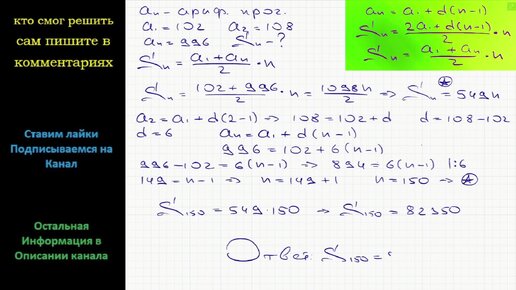 кто смог решить
сам пишите в
комментариях
Ставим лайки
Подписываемся на
Канал
Остальная
Информация в
Описании канала
an - ариф. прог.
a₁ = 102 a₂ = 108
an = 996 Sn - ?
Sn = (a₁ + an)/2 · n
Sn = (102 + 996)/2 · n = 1098n/2 ⇒ Sn = 549n
a₂ = a₁ + d(2-1) ⇒ 108 = 102 + d d = 108 - 102
d = 6 an = a₁ + d(n-1)
996 = 102 + 6(n-1)
996 - 102 = 6(n-1) ⇒ 894 = 6(n-1) |:6
149 = n - 1 ⇒ n = 149 + 1 n = 150 ⇒ ★
S₁₅₀ = 549 · 150 → S₁₅₀ = 82350
Ответ: S₁₅₀ =
an = a₁ + d(n-1)
Sn = (2a₁ + d(n-1))/2 · n
Sn = (a₁ + an)/2 · n